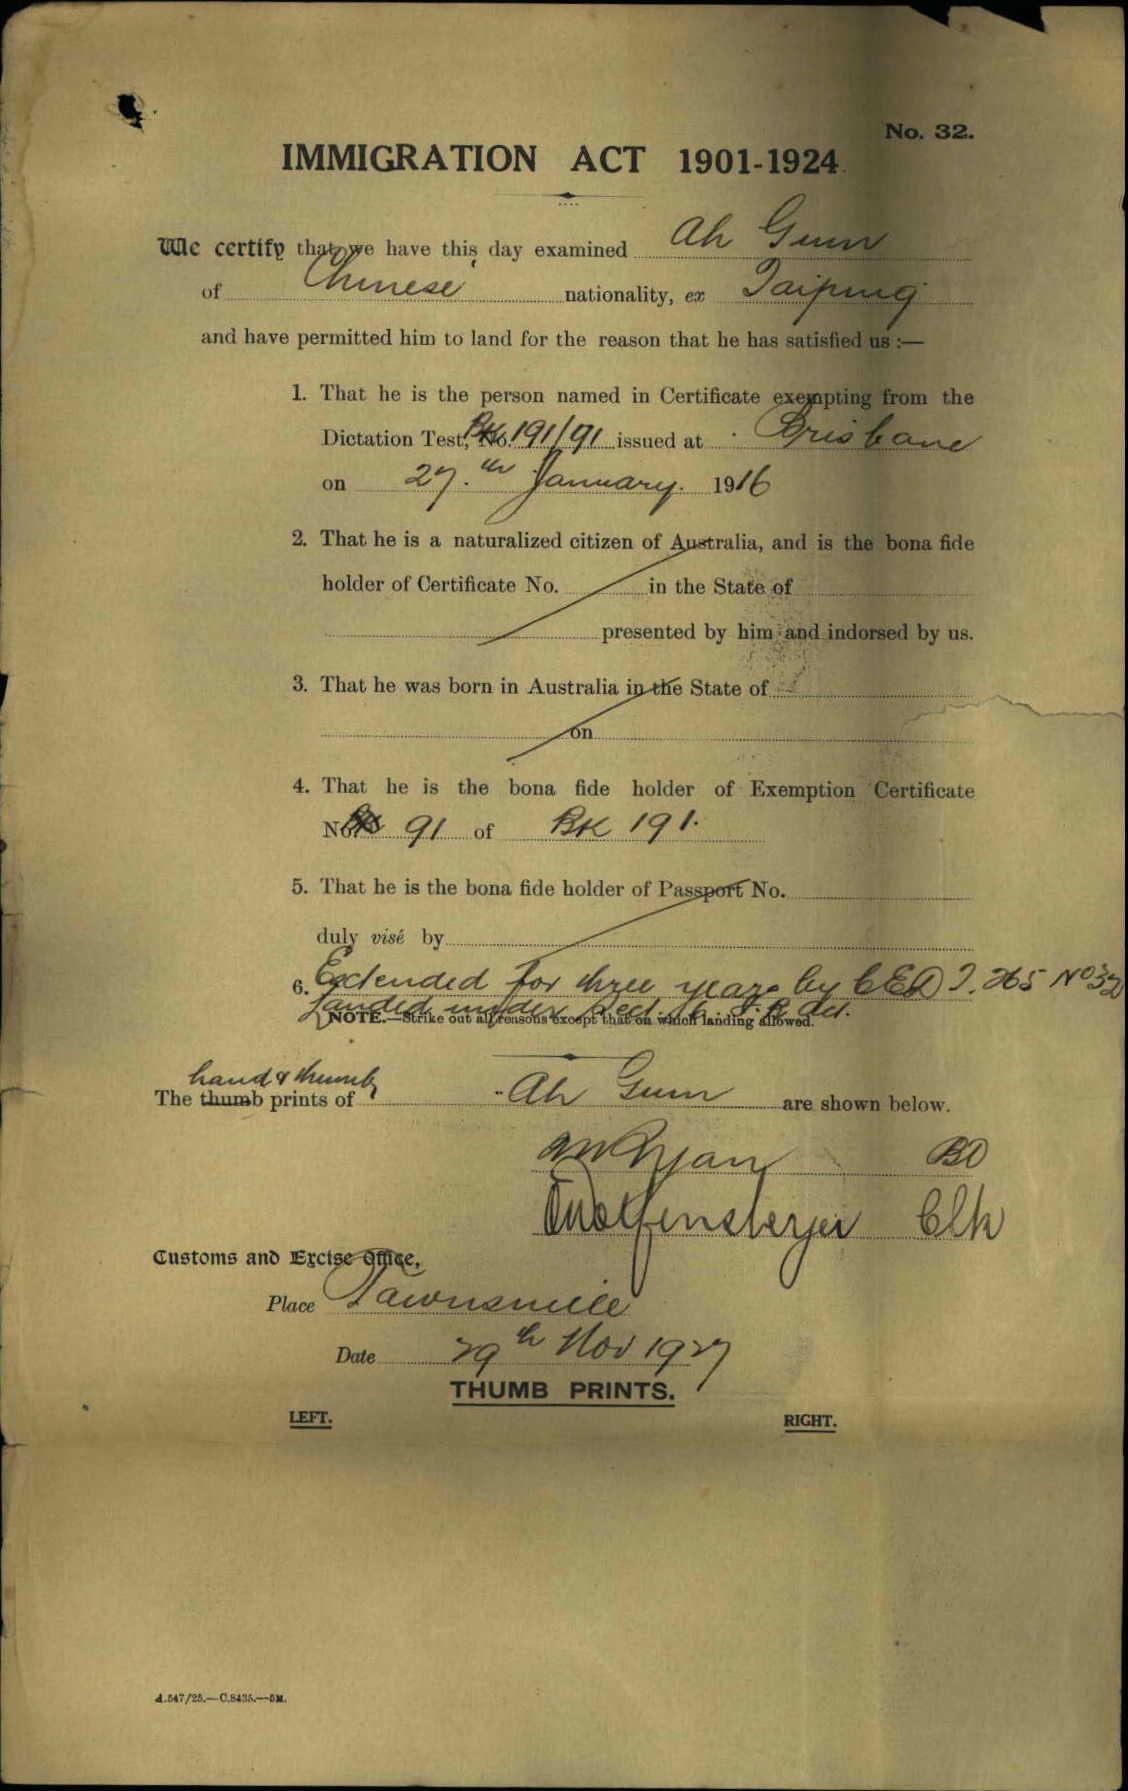 No. 32.
IMMIGRATION ACT 1901-1924.
We certify that we have this day examined Ah Gum
of Chinese nationality, ex Taiping
and have permitted him to land for the reason that he has satisfied us :—
1. That he is the person named in Certificate exempting from the
Dictation Test, No. Bk 191/91 issued at Brisbane
on 27th January. 1916
2. That he is a naturalized citizen of Australia, and is the bona fide
holder of Certificate No. in the State of
presented by him and indorsed by us.
3. That he was born in Australia in the State of
on
4. That he is the bona fide holder of Exemption Certificate
No. 91 of BK 191.
5. That he is the bona fide holder of Passport No.
duly visé by
6. Extended for three years by CED I. 265 No 32
Landed under Sect. Act.
NOTE.—Strike out all reasons except that on which landing allowed.
hand & thumb
The thumb prints of Ah Gum are shown below.
Ryan BO
Wolfensberger Clk
Customs and Excise Office,
Place Townsville
Date 29th Nov 1927
THUMB PRINTS.
LEFT. RIGHT.
A.547/25.—C.8435.—5M.